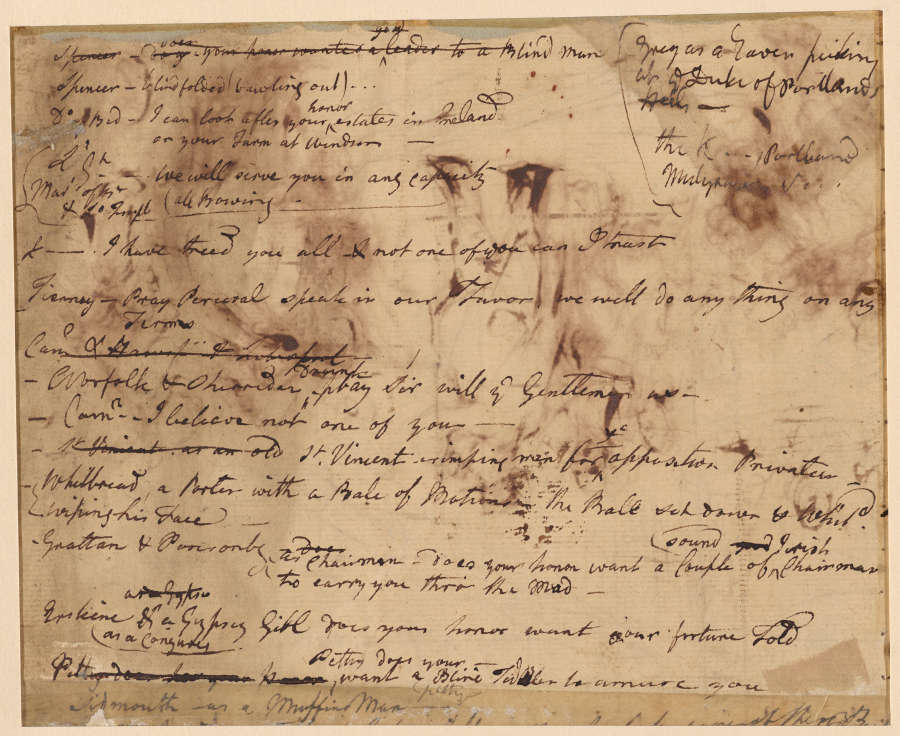 good
does
Spencer - Do yr your honor wants a leader to a Blind man
Spencer - blindfolded (bawling out) - ..
Do - Bed - I can look after your honor estates in Ireland
or your Farm at Windsor -
We will serve you in any capacity
(all Bowing -
Grey as a Raven picking
up ye Duke of Portlands
the K - - - Portland
I have tried you all & not one of you can I trust
Tierney - Pray Perceval speak in our Favor, we will do any thing on any
Terms
- Norfolk & Sheridan, pray Sir will ye Gentleman us -
- Camn - I believe not one of you -
- St Vincent as an old St. Vincent crimping men for ye opposition Privateer
- Whitbread, a Porter with a Bale of Motions the Bale set down &
(wiping his Face -
- Grattan & Ponsonby as Chairmen - does your honor want a Couple of sound Irish Chairman
to carry you thro the Mud -
as a Gypsy
Erskine as a Gypsey Girl does your honor want your fortune Told
(as a Conjuror
Petty does your
want a Blind Fiddler to amuse you
petty
Sidmouth - as a Muffin Man